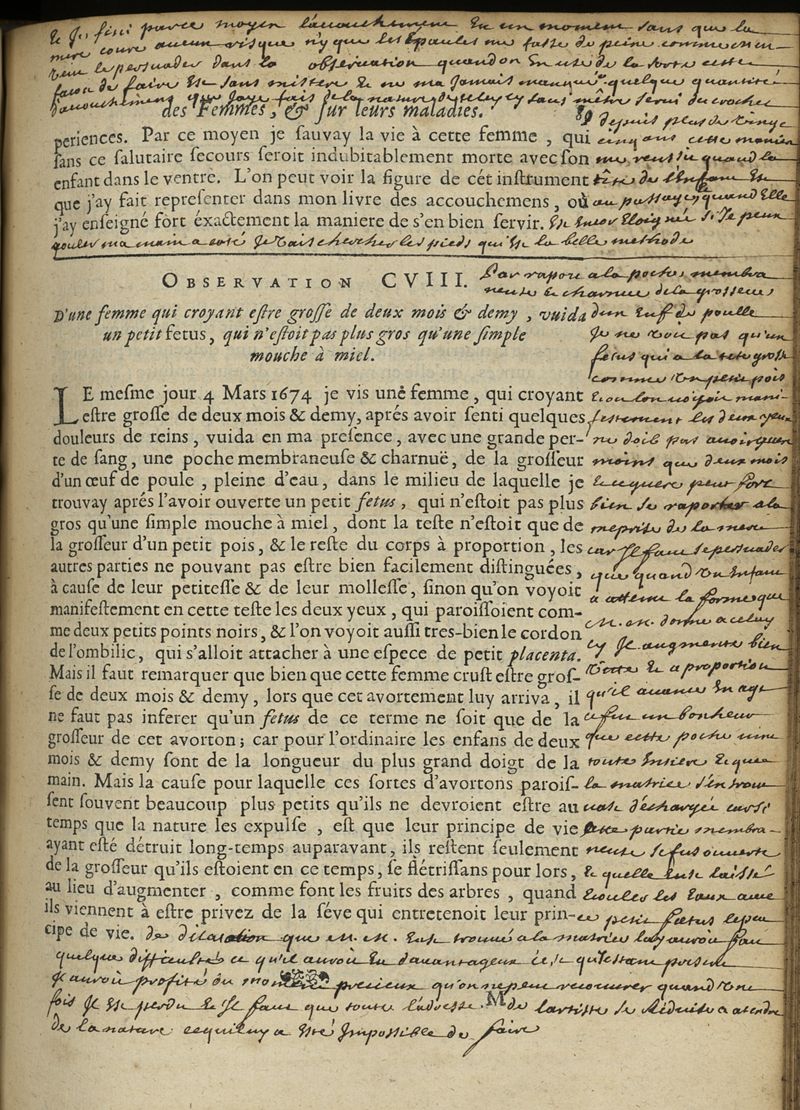 & Je finis parce moyen Laccouchement En un moment sans que la
mere coure aucun risque n'y que les Epaules me fasse de peine comme on
le persuader dans la observation quand on En use de la sorte cette
facon de faire Est sans mistere & ne ma Jamais manqué quelque quantité
d'accouchement que Jaye fait
des Femmes, & sur leurs maladies.
periences. Par ce moyen je sauvay la vie à cette femme, qui
sans ce salutaire secours seroit indubitablement morte avec son
enfant dans le ventre. L'on peut voir la figure de cét instrument
que j'ay fait representer dans mon livre des accouchemens, où
j'ay enseigné fort éxactement la maniere de s'en bien servir.
depuis plus de vingt
cinq ans cette maniere
quand la
tête de l'Enfant Est
au passage quand Elle
En Est Eloignée si Je peux
couler ma main a coté Je vais chercher les pieds qui Est la belle methode
OBSERVATION CVIII.
D'une femme qui croyant estre grosse de deux mois & demy, vuida
un petit fetus, qui n'estoit pas plus gros qu'une simple
mouche à miel.
LE mesme jour 4 Mars 1674 je vis une femme, qui croyant
estre grosse de deux mois & demy, aprés avoir senti quelques
douleurs de reins, vuida en ma presence, avec une grande per-
te de sang, une poche membraneuse & charnuë, de la grosseur
d'un œuf de poule, pleine d'eau, dans le milieu de laquelle je
trouvay aprés l'avoir ouverte un petit fetus, qui n'estoit pas plus
gros qu'une simple mouche à miel, dont la teste n'estoit que de
la grosseur d'un petit pois, & le reste du corps à proportion, les
autres parties ne pouvant pas estre bien facilement distinguées,
à cause de leur petitesse & de leur mollesse, sinon qu'on voyoit
manifestement en cette teste les deux yeux, qui paroissoient com-
me deux petits points noirs, & l'on voyoit aussi tres-bien le cordon
de l'ombilic, qui s'alloit attacher à une espece de petit placenta.
Mais il faut remarquer que bien que cette femme crust estre gros-
se de deux mois & demy, lors que cet avortement luy arriva, il
ne faut pas inferer qu'un fetus de ce terme ne soit que de la
grosseur de cet avorton; car pour l'ordinaire les enfans de deux
mois & demy sont de la longueur du plus grand doigt de la
main. Mais la cause pour laquelle ces sortes d'avortons parois-
sent souvent beaucoup plus petits qu'ils ne devroient estre au
temps que la nature les expulse, est que leur principe de vie
ayant esté détruit long-temps auparavant, ils restent seulement
de la grosseur qu'ils estoient en ce temps, se flétrissans pour lors,
au lieu d'augmenter, comme font les fruits des arbres, quand
ils viennent à estre privez de la séve qui entretenoit leur prin-
cipe de vie.
Par raport a la poche membra
neuse & charnue de la grosseur
d'un Euf de poulle
Je ne voit pas qu'un
fetus qui a la tete grosse
comme un petit pois
et ou lon voyoit mani-
festement les deux yeux
ne doit pas avoir
moins que deux mois
ce qui peut fort
bien se raporter a la
meprise de la mere
car Il faut se persuader
que quand un Enfant
a attein la forme que
M. m. donne a celuy
cy Il augmente bien
viste & a proportion
qu'il avance En age
ce fut un bonheur
que cette poche vint
toute Entiere & que
la matrice s'en trou
vat dechargée car si
cette partie membra-
neuse se fut ouverte
& quelle Eut laissé
couler les Eaux avec
ce petit fœtus le peu
de dilatation que M. m. Eut trouvé a la matrice luy auroit fait
quelque difficultés ce qu'il auroit Eu davantageux
Il auroit profité du moment precieux qu'on ne peut recouvrer quand une
fois Il Est perdu & Il faut que toute Ladresse de lartiste se Reduise a atendre
M
de la nature ce qui luy a Esté Impossible de faire